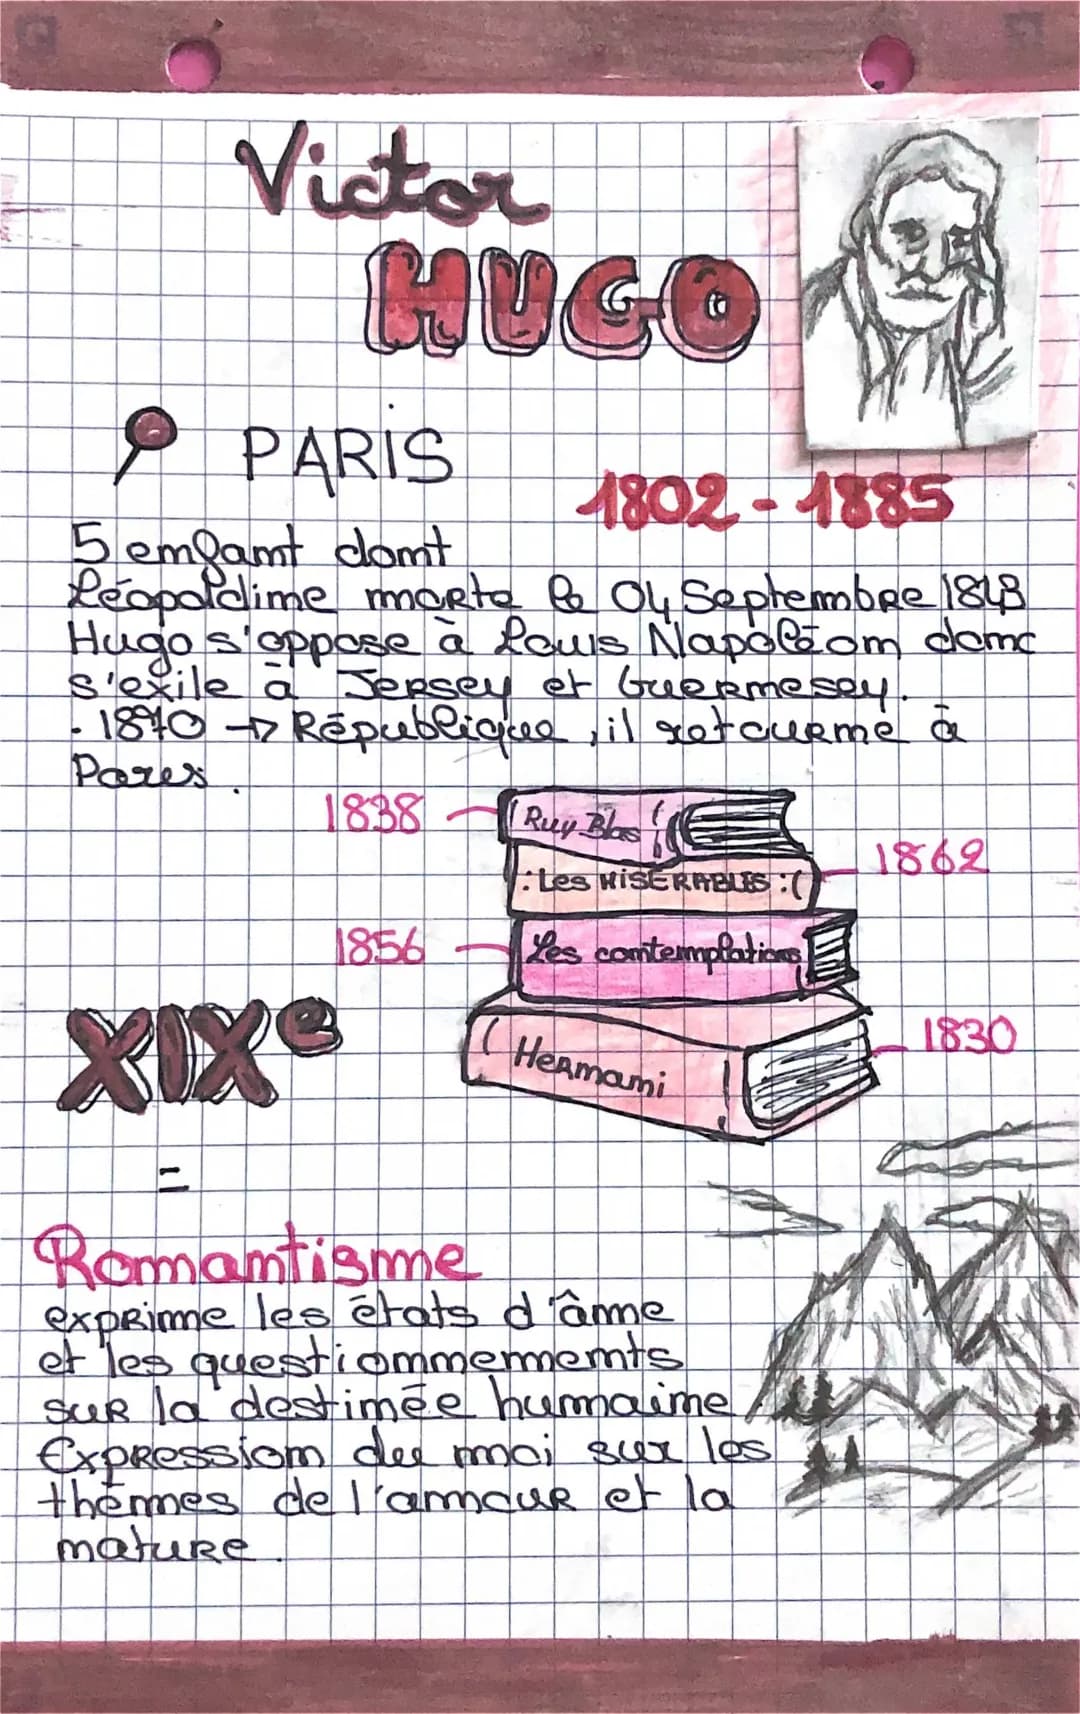 Victor
HUGO
PARIS
1802 - 1885
5 enfant dont
Léopoldine morte le 04 Septembre 1843
Hugo s'oppose à Louis Napoléon donc
s'exile à Jersey et Guernesey.
- 1870 → République, il retourne à
Pares.
1838
Ruy Blas
Les MISÉRABLES :(
1862
1856
Les contemplations
Hernani
1830
XIXe
=
Romantisme
exprime les états d'âme
et les questionnements
sur la destinée humaine
Expression du moi sur les
thèmes de l'amour et la
nature.